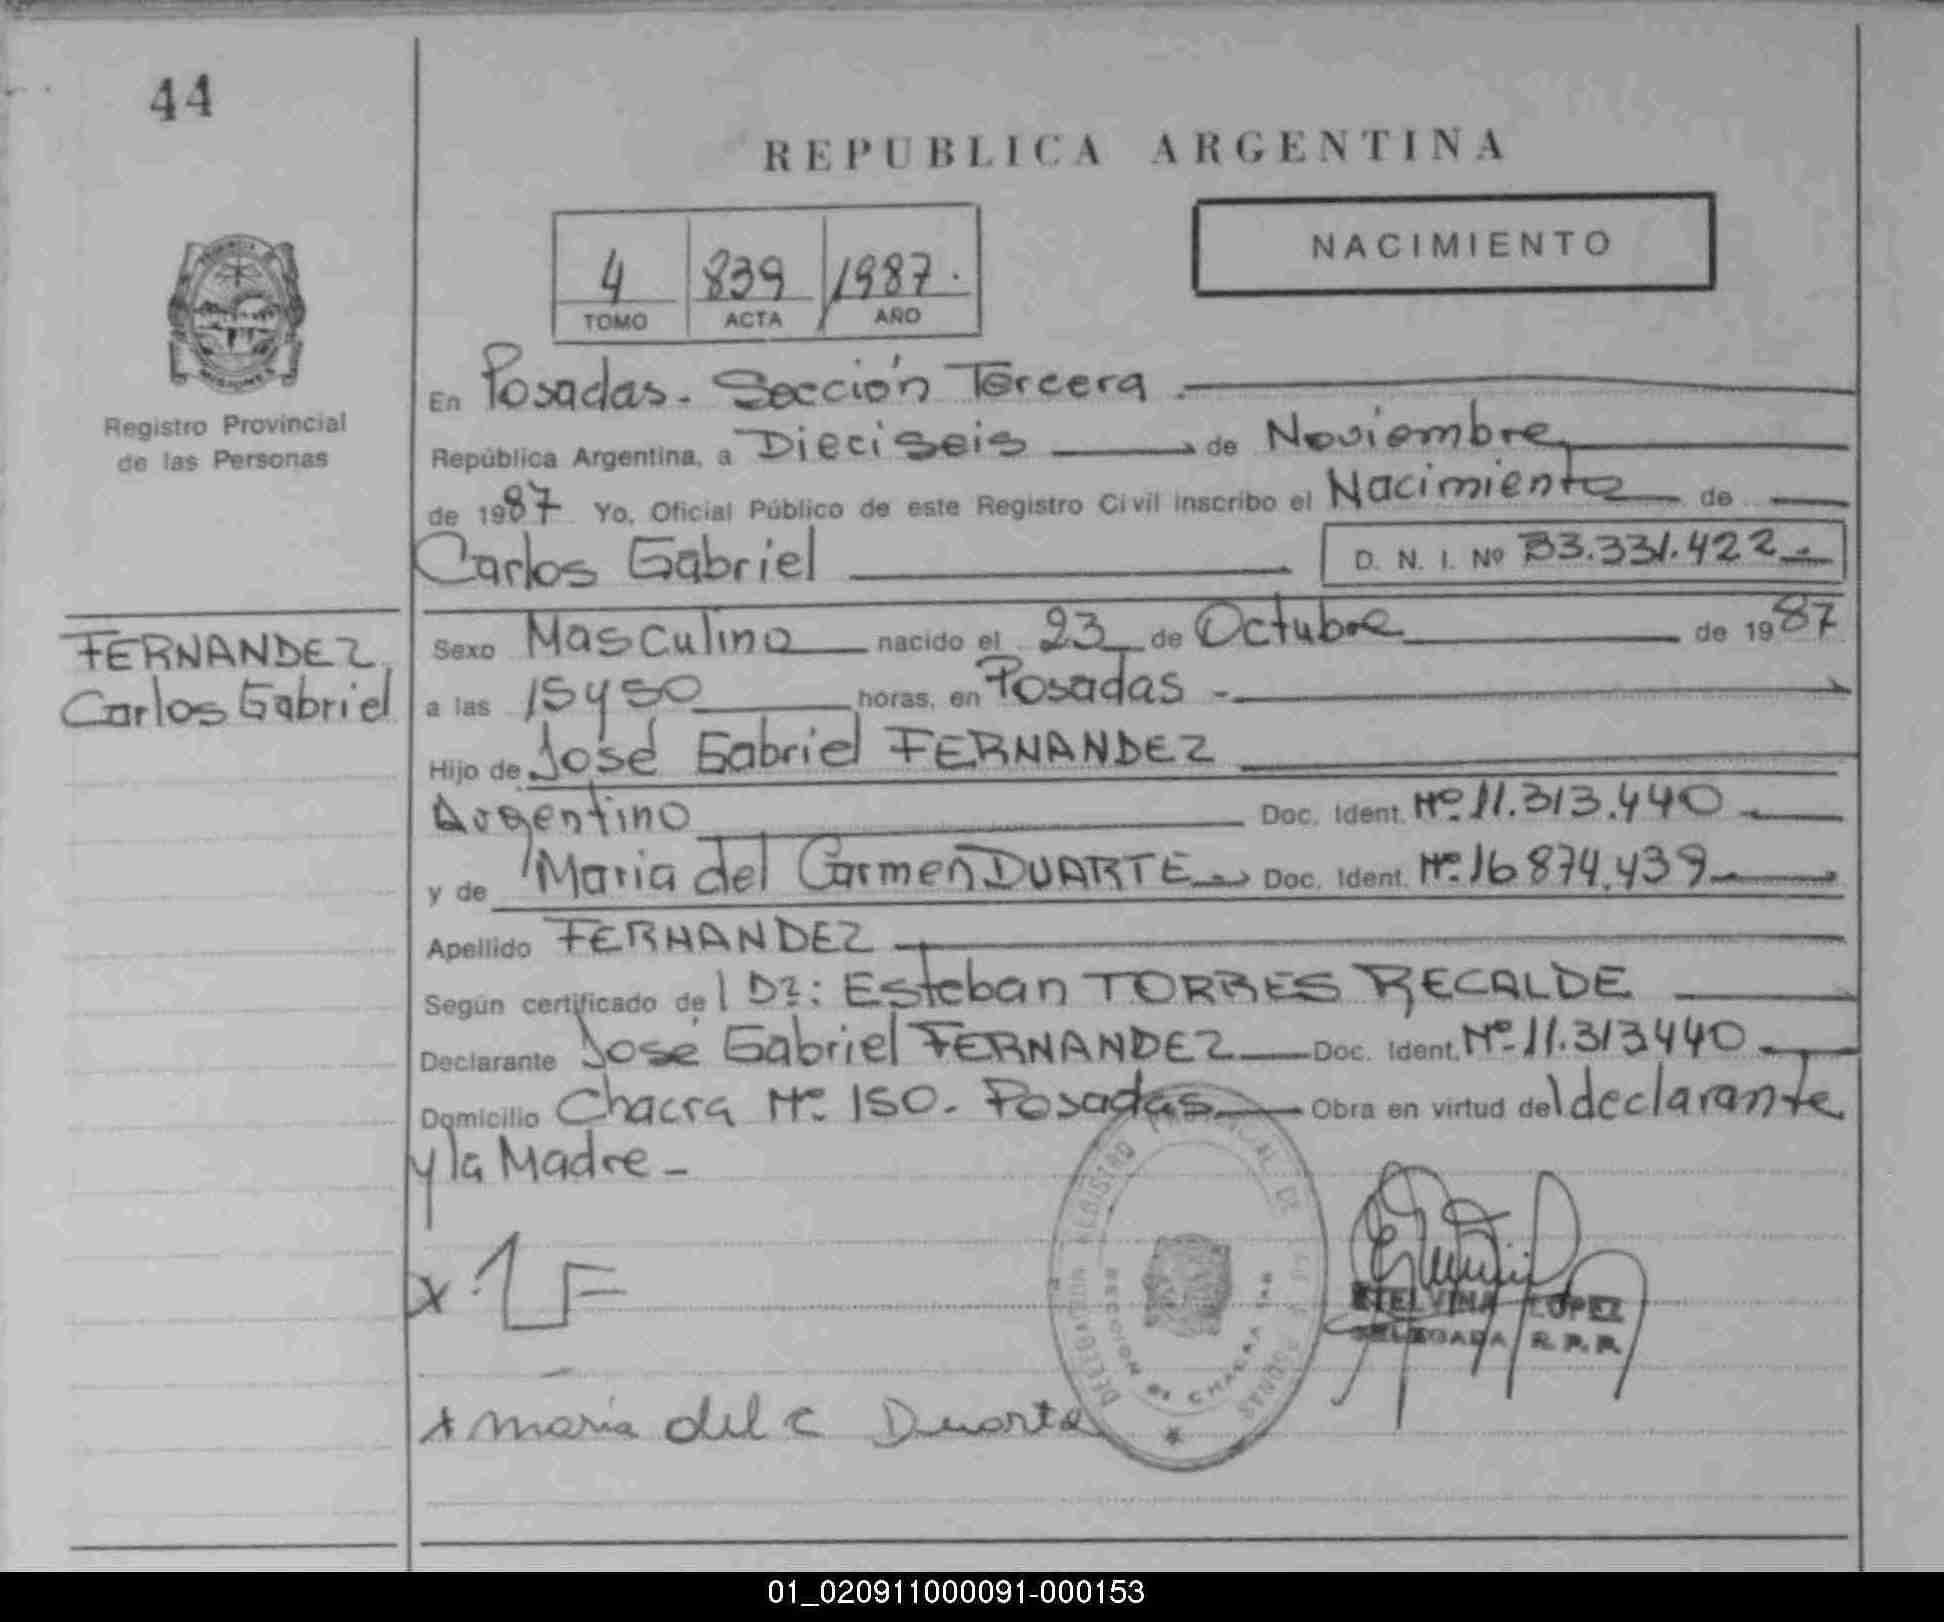 44
REPUBLICA ARGENTINA
NACIMIENTO
4 839 1987.
TOMO ACTA AÑO
Registro Provincial
de las Personas
En Posadas - Sección Tercera.
República Argentina, a Dieciseis de Noviembre
de 1987 Yo, Oficial Público de este Registro Civil inscribo el Nacimiento de
Carlos Gabriel D. N. I. Nº 33.331.422.-
FERNANDEZ
Carlos Gabriel
Sexo Masculino nacido el 23 de Octubre de 1987
a las 15 y 50 horas, en Posadas -
Hijo de José Gabriel FERNANDEZ
Argentino Doc. Ident. Nº 11.313.440
y de Maria del Carmen DUARTE Doc. Ident. Nº 16 874.439
Apellido FERNANDEZ
Según certificado del Dr: Esteban TORRES RECALDE
Declarante José Gabriel FERNANDEZ Doc. Ident. Nº 11.313440
Domicilio Chacra Nº 150. Posadas Obra en virtud del declarante
y la Madre -
x
x maria del c Duarte
DELEGACION REGISTRO PROVINCIAL DE LAS PERSONAS
ETELVINA LOPEZ
DELEGADA R. P. P.
01_020911000091-000153